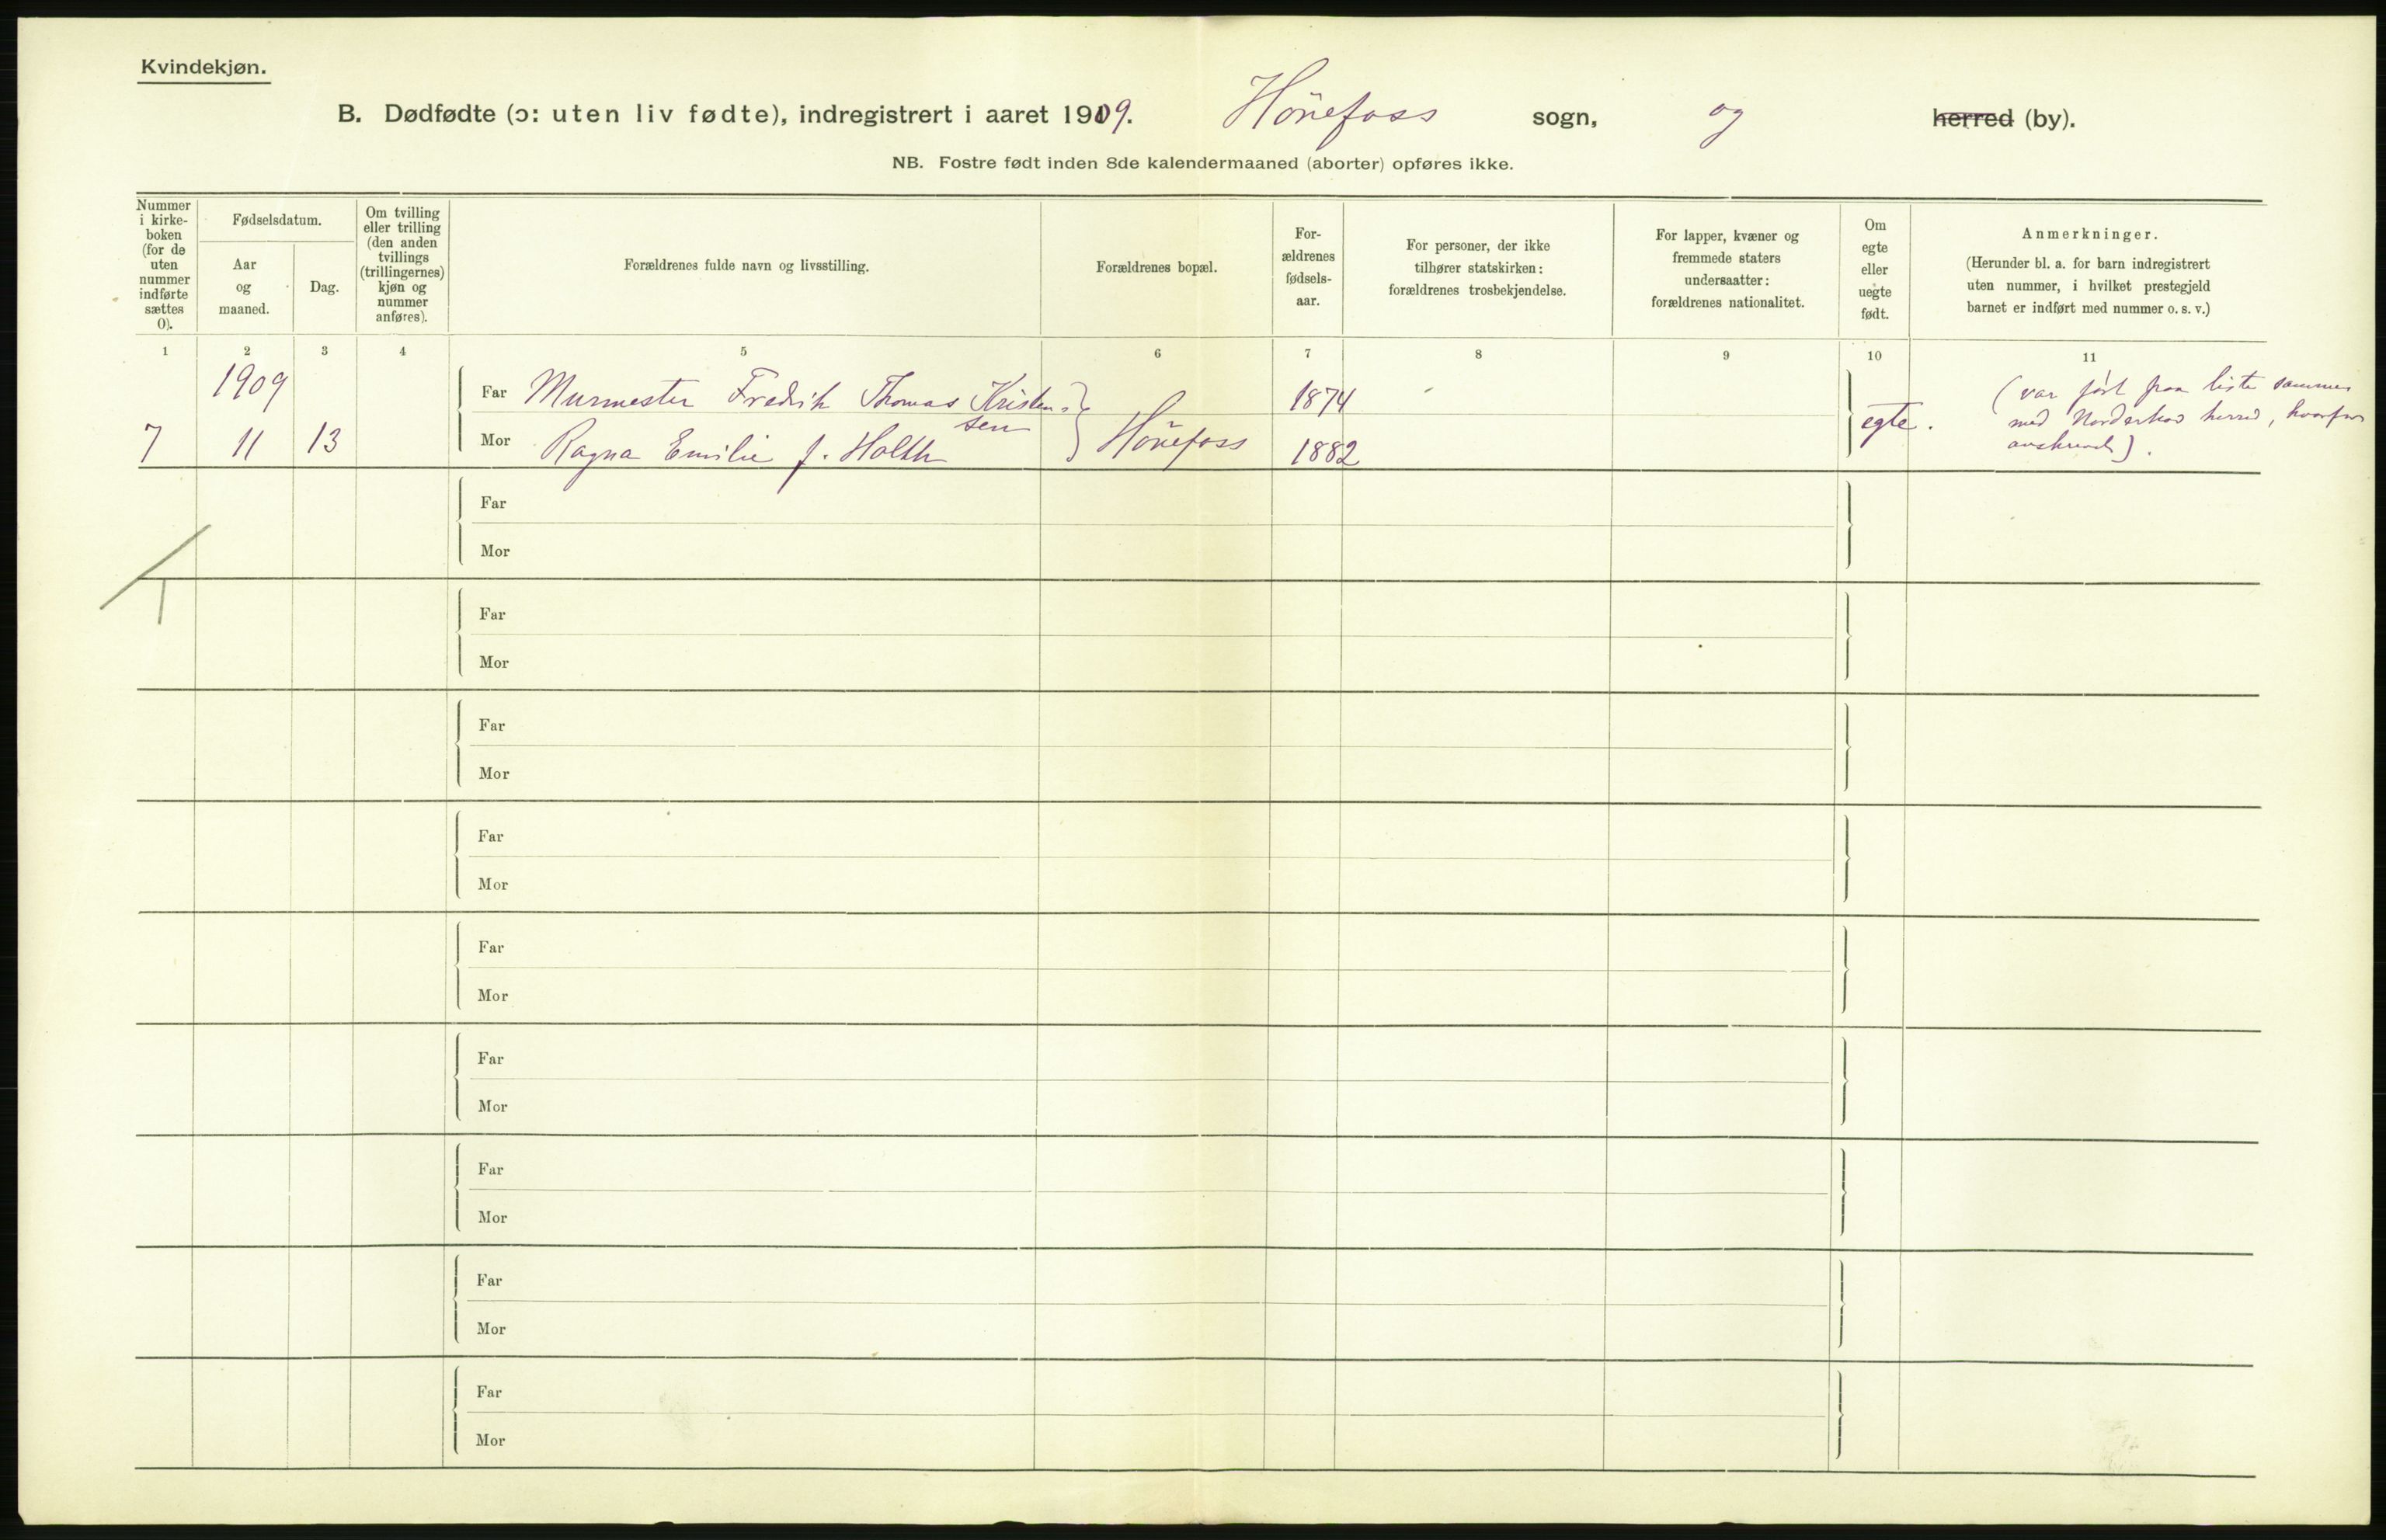 Kvindekjøn.
B. Dødfødte (ɔ: uten liv fødte), indregistrert i aaret 1909. Hönefoss sogn, og herred (by).
NB. Fostre født inden 8de kalendermaaned (aborter) opføres ikke.
Nummer
i kirke-
boken
(for de
uten
nummer
indførte
sættes
0).
Fødselsdatum.
Aar
og
maaned.
Dag.
Om tvilling
eller trilling
(den anden
tvillings
(trillingernes)
kjøn og
nummer
anføres).
Forældrenes fulde navn og livsstilling.
Forældrenes bopæl.
For-
ældrenes
fødsels-
aar.
For personer, der ikke
tilhører statskirken:
forældrenes trosbekjendelse.
For lapper, kvæner og
fremmede staters
undersaatter:
forældrenes nationalitet.
Om
egte
eller
uegte
født.
Anmerkninger.
(Herunder bl. a. for barn indregistrert
uten nummer, i hvilket prestegjeld
barnet er indført med nummer o. s. v.)
1 2 3 4 5 6 7 8 9 10 11
1909
7 11 13
Far Murmester Fredrik Thomas Kristen-
sen
Mor Ragna Emilie f. Holth
Hönefoss
1874
1882
egte.
(var ført paa liste sammen
med Norderhov herred, hvorfor
avskrevet).
Far
Mor
Far
Mor
Far
Mor
Far
Mor
Far
Mor
Far
Mor
Far
Mor
Far
Mor
Far
Mor